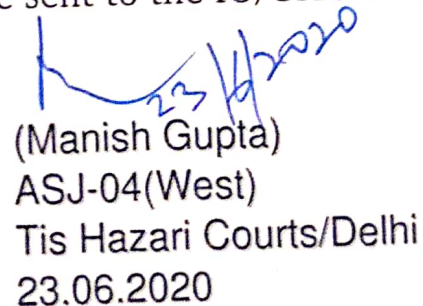 sent to the
23/6/2020
(Manish Gupta)
ASJ-04(West)
Tis Hazari Courts/Delhi
23.06.2020